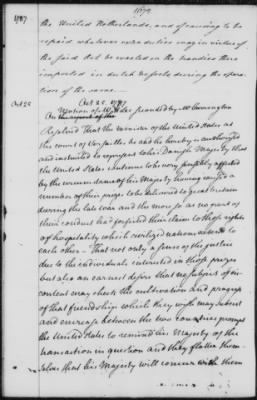 1787
the United Netherlands, and of causing to be
repaid whatever extra duties may in virtue of
the said Act be exacted on the brandies there
imported in dutch bottoms during the opera-
tion of the same.
Oct 25
Oct 25. 1787
Motion of Mr seconded by Mr Carrington
Resolved That the minister of the United States at
the court of Versailles be and he hereby is authorised
and instructed to represent to his Danish Majesty that
the United States continue to be very sensibly affected
by the circumstance of his Majesty having caused a
number of their prizes to be delivered to great britain
during the late war and the more so as no part of
their conduct had forfeited their claim to those rights
of hospitality which civilized nations extend to
each other. That not only a sense of the justice
due to the individuals interested in those prizes
but also an earnest desire that no subject of dis-
content may check the cultivation and progress
of that friendship which they wish may subsist
and encrease between the two countries prompt
the United States to remind his Majesty of the
transaction in question and they flatter them-
selves that his Majesty will concur with them